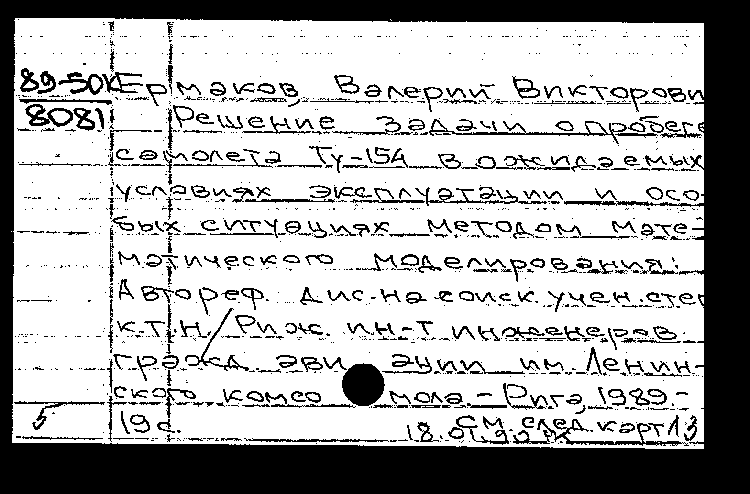 89-50к Ермаков, Валерий Викторови
8081 Решение задачи о пробеге
самолета Ту-154 в ожидаемых
условиях эксплуатации и осо-
бых ситуациях методом мате-
матического моделирования:
Автореф. дис. на соиск. учен. степ
к.т.н. / Риж. ин-т инженеров
гражд. ави ации им. Ленин-
ского комсо мола. - Рига, 1989. -
5 19 с. См. след. карт
18.01.90